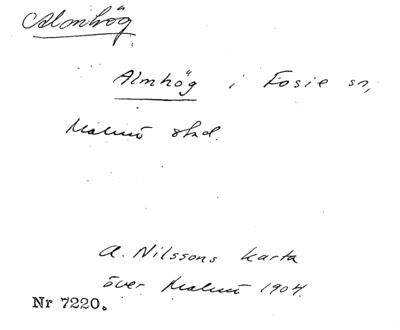 Almhög
Almhög i Fosie sn,
Malmö stad.
A. Nilssons karta
över Malmö 1904.
Nr 7220.